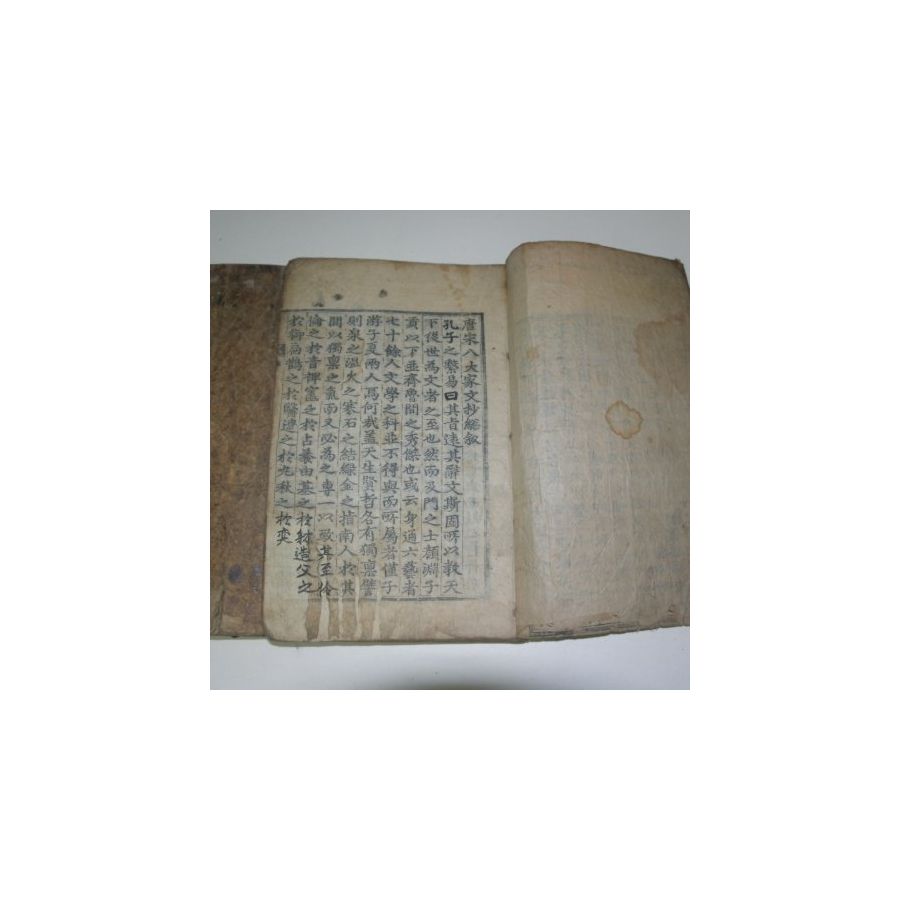 唐宋八大家文抄緫叙
孔子之繫易曰其旨遠其辭文斯固所以教天
下後世爲文者之至也然而及門之士顔淵子
貢以下並齊魯間之秀傑也或云身通六藝者
七十餘人文學之科並不得與而所屬者僅子
游子夏兩人焉何哉盖天生賢哲各有獨禀譬
則泉之溫火之寒石之結緑金之指南人於其
間以獨禀之氣而又必爲之專一以致其至伶
倫之於音裨竈之於占養由基之於射造父之
於御扁鵲之於醫遼之於九秋之於奕